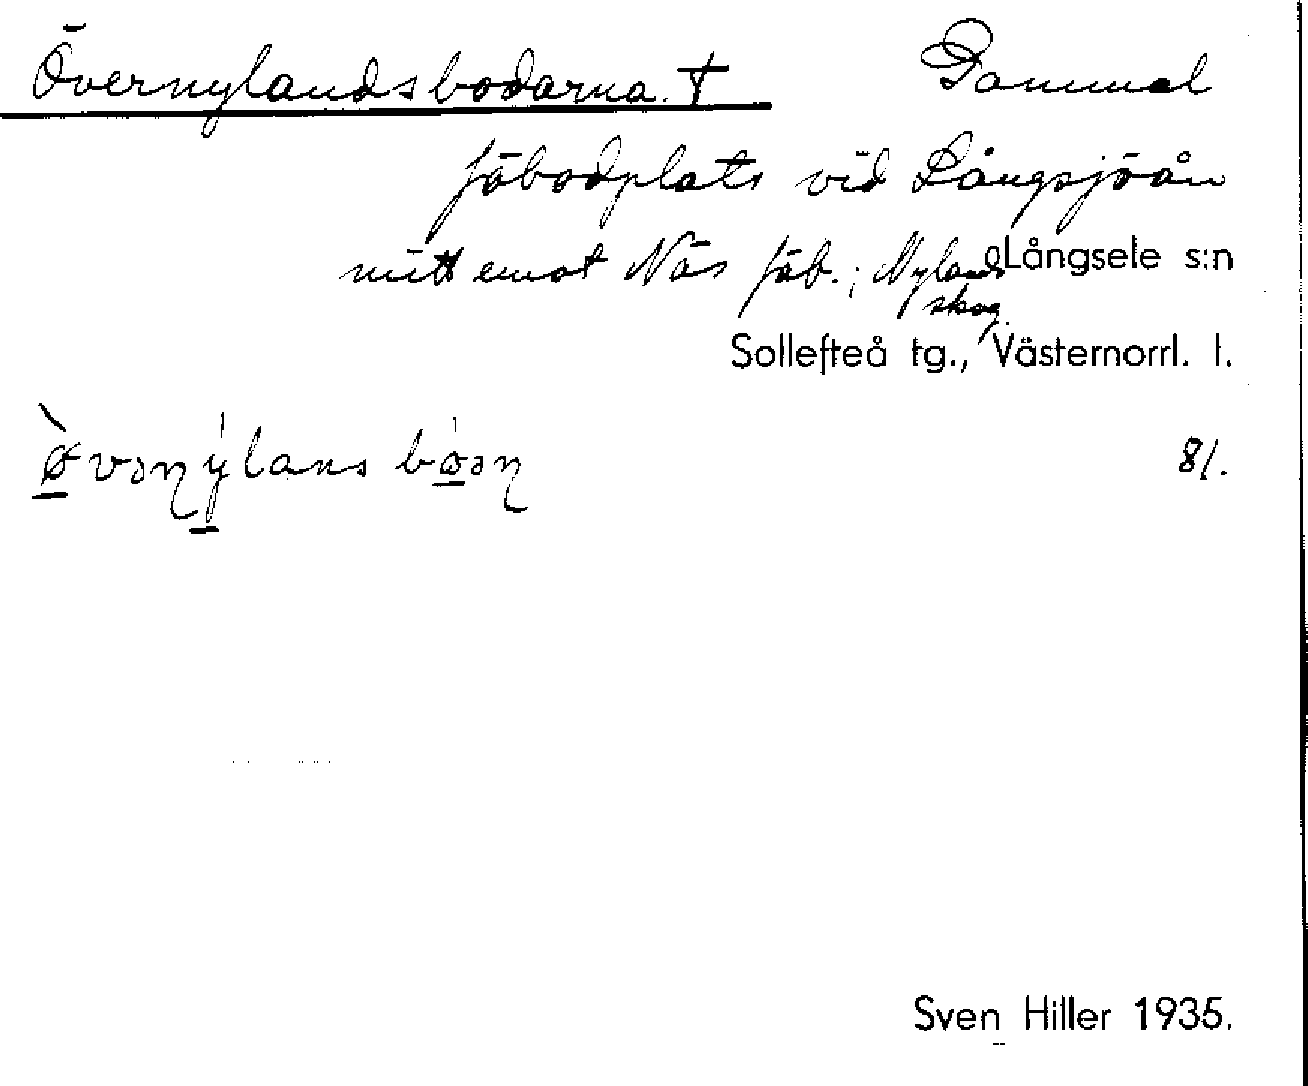 Övernylandsbodarna. † Gammal
fäbodplats vid Långsjöån
mitt emot Näs fäb.; Nylands
skog.
Långsele s:n
Sollefteå tg., Västernorrl. l.
81.
Sven Hiller 1935.